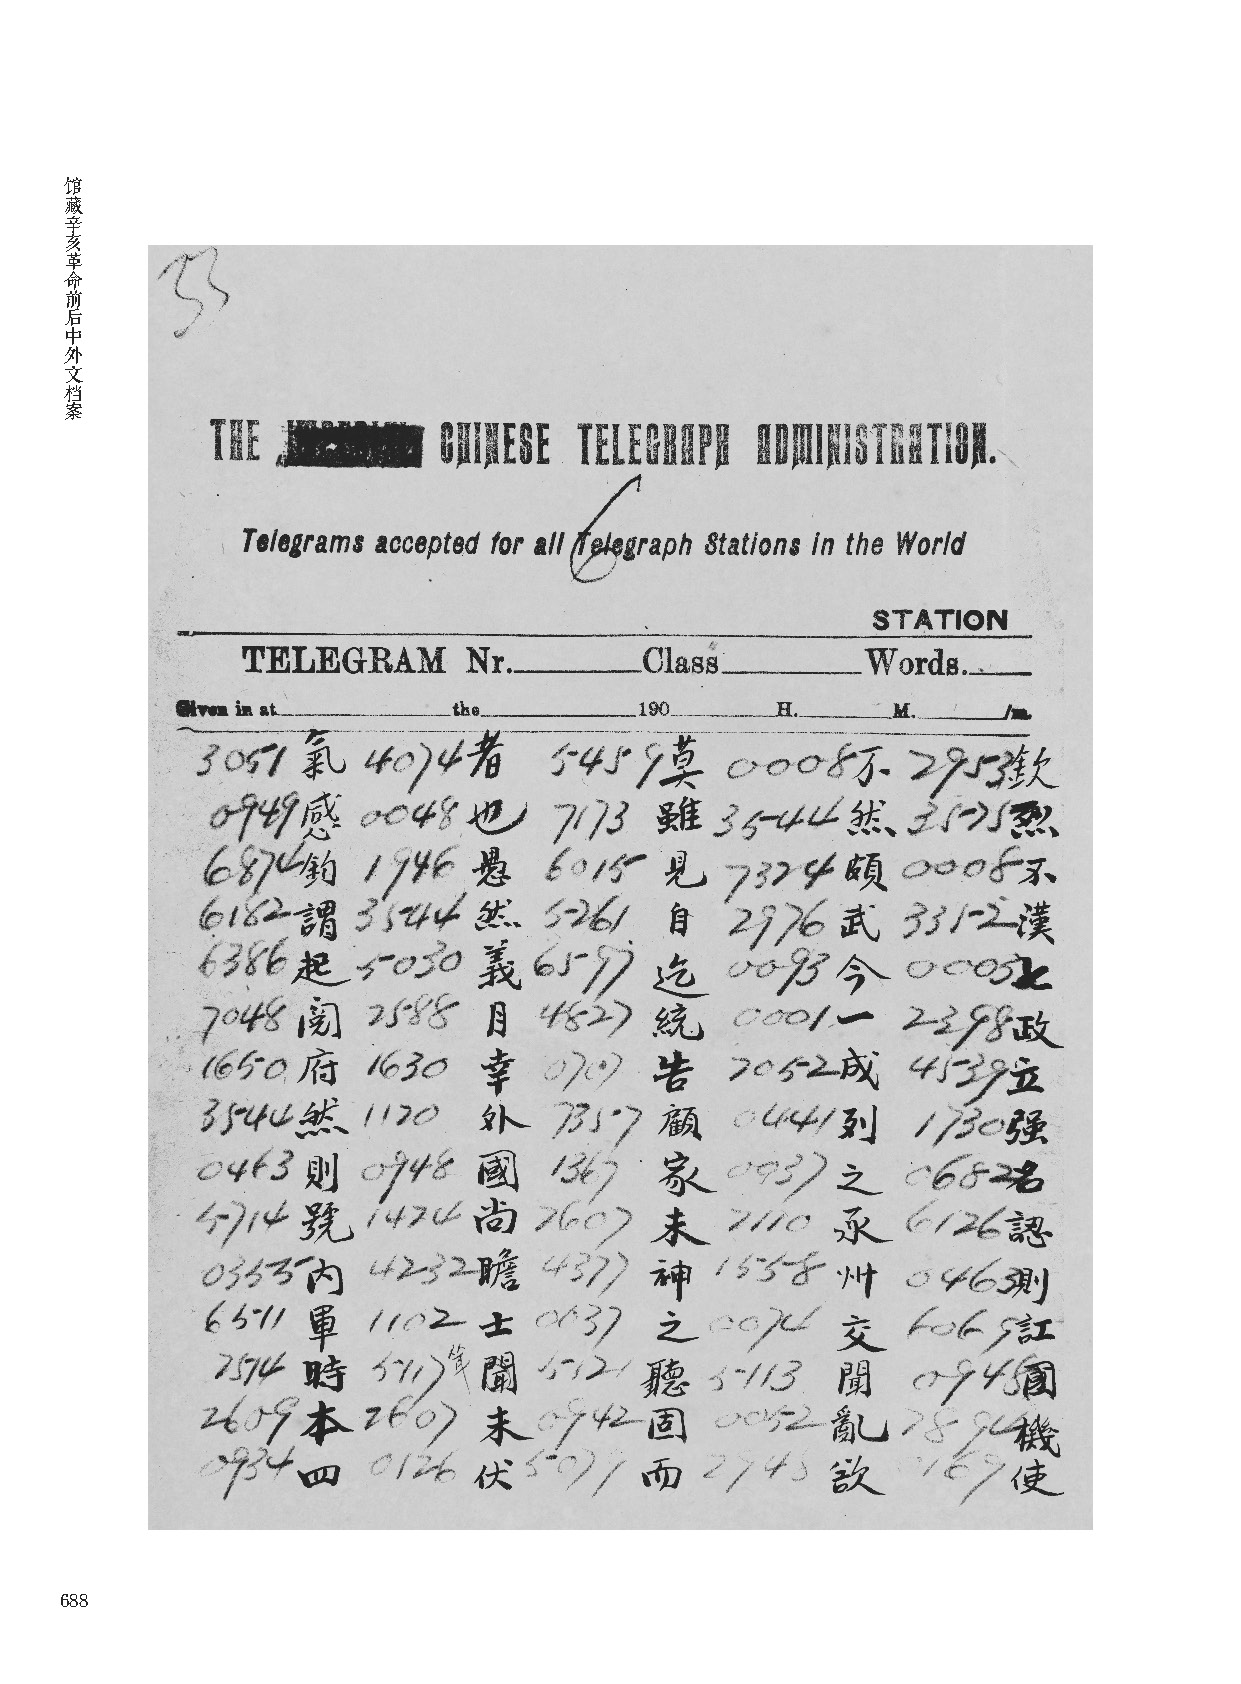 馆藏辛亥革命前后中外文档案
33
THE CHINESE TELEGRAPH ADMINISTRATION.
Telegrams accepted for all Telegraph Stations in the World
STATION
TELEGRAM Nr. Class Words.
Given in at the 190 H. M. /m.
3051 氣 4074 者 5459 莫 0008 不 2953 欽
0949 感 0048 也 7173 雖 3544 然 3525 烈
6874 鈞 1946 愚 6015 見 7324 頗 0008 不
6182 謂 3544 然 5261 自 2976 武 3352 漢
6386 起 5030 義 6597 迄 0093 今 0003 七
7048 閱 2588 月 4827 統 0001 一 2398 政
1650 府 1630 幸 0707 告 2052 成 4539 立
3544 然 1120 外 7357 顧 0441 列 1730 强
0463 則 0948 國 1367 家 0037 之 0682 名
5714 號 1424 尚 2607 未 2110 承 6126 認
0355 內 4232 瞻 4377 神 1558 州 0463 則
6511 軍 1102 士 0037 之 0074 交 6069 訌
2514 時 5117 聞 5121 聽 5113 聞 0948 國
2609 本 2607 未 0942 固 0052 亂 2894 機
0934 四 0126 伏 5071 而 2948 欲 0169 使
688